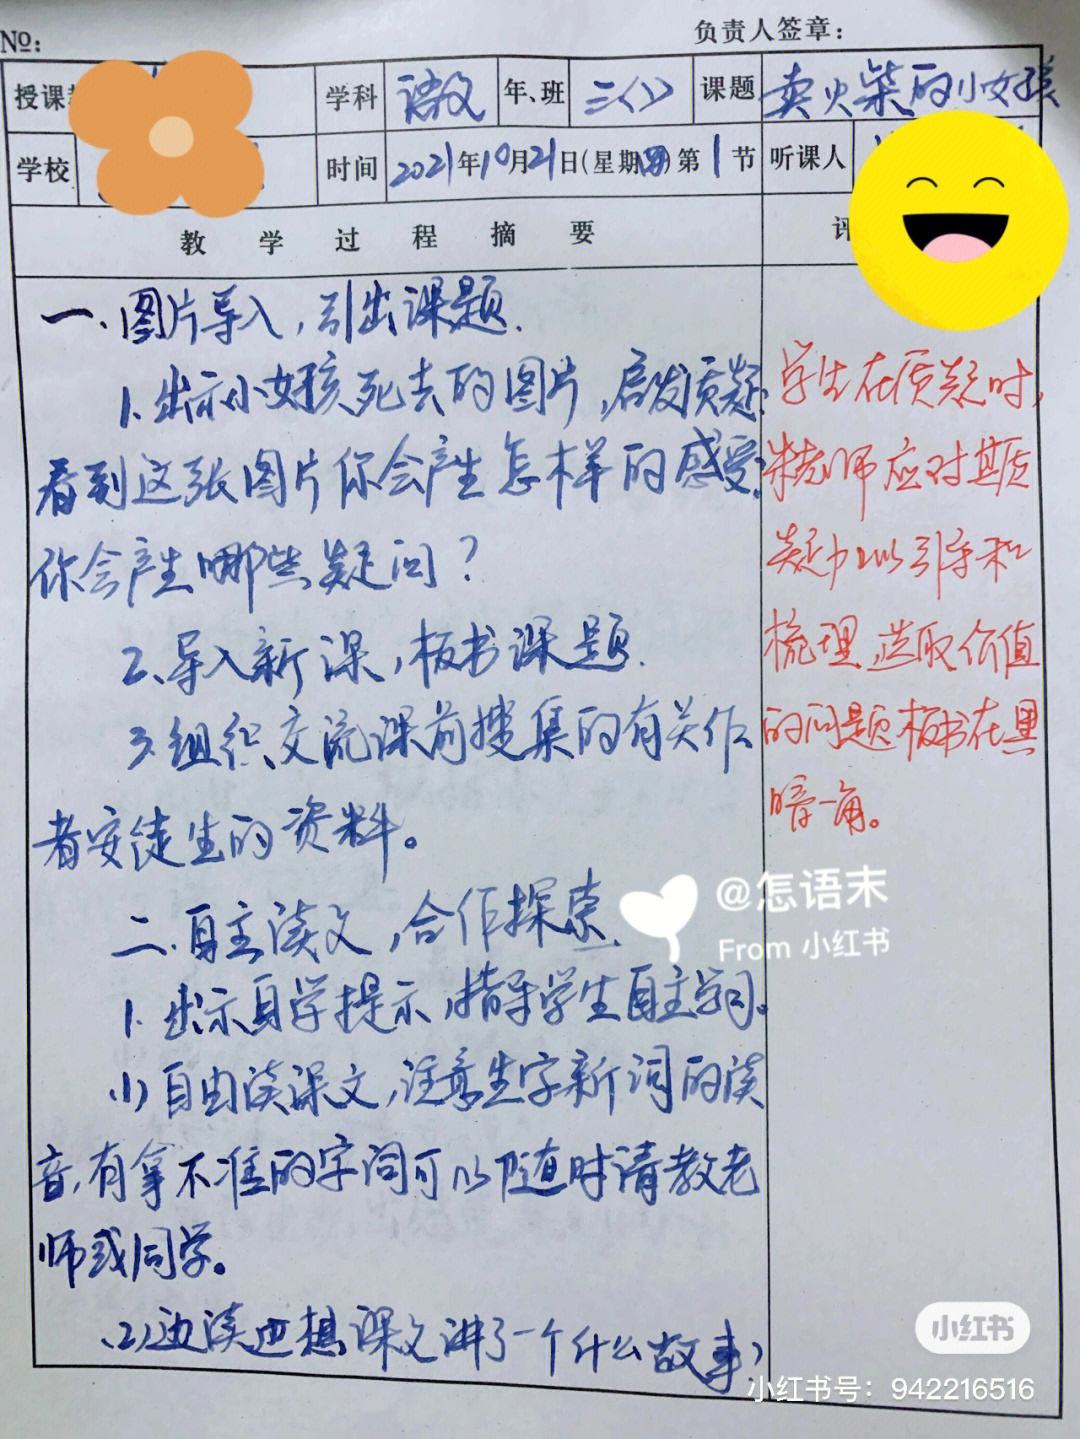 №: 负责人签章：
授课 学科 语文 年、班 三(1) 课题 卖火柴的小女孩
学校 时间 2021年10月21日(星期四)第1节 听课人
教学过程摘要 评
一、图片导入，引出课题.
1. 出示小女孩死去的图片，启发质疑：
看到这张图片你会产生怎样的感受？
你会产生哪些疑问？
2、导入新课，板书课题.
3、组织交流课前搜集的有关作
者安徒生的资料。
二、自主读文，合作探索.
1. 出示自学提示，指导学生自主学习。
(1) 自由读课文，注意生字新词的读
音，有拿不准的字词可以随时请教老
师或同学。
(2)边读边想课文讲了一个什么故事？
学生在质疑时，
老师应对其质
疑加以引导和
梳理，选取价值
的问题板书在黑
暗一角。
@怎语末
From 小红书
小红书
小红书号：942216516